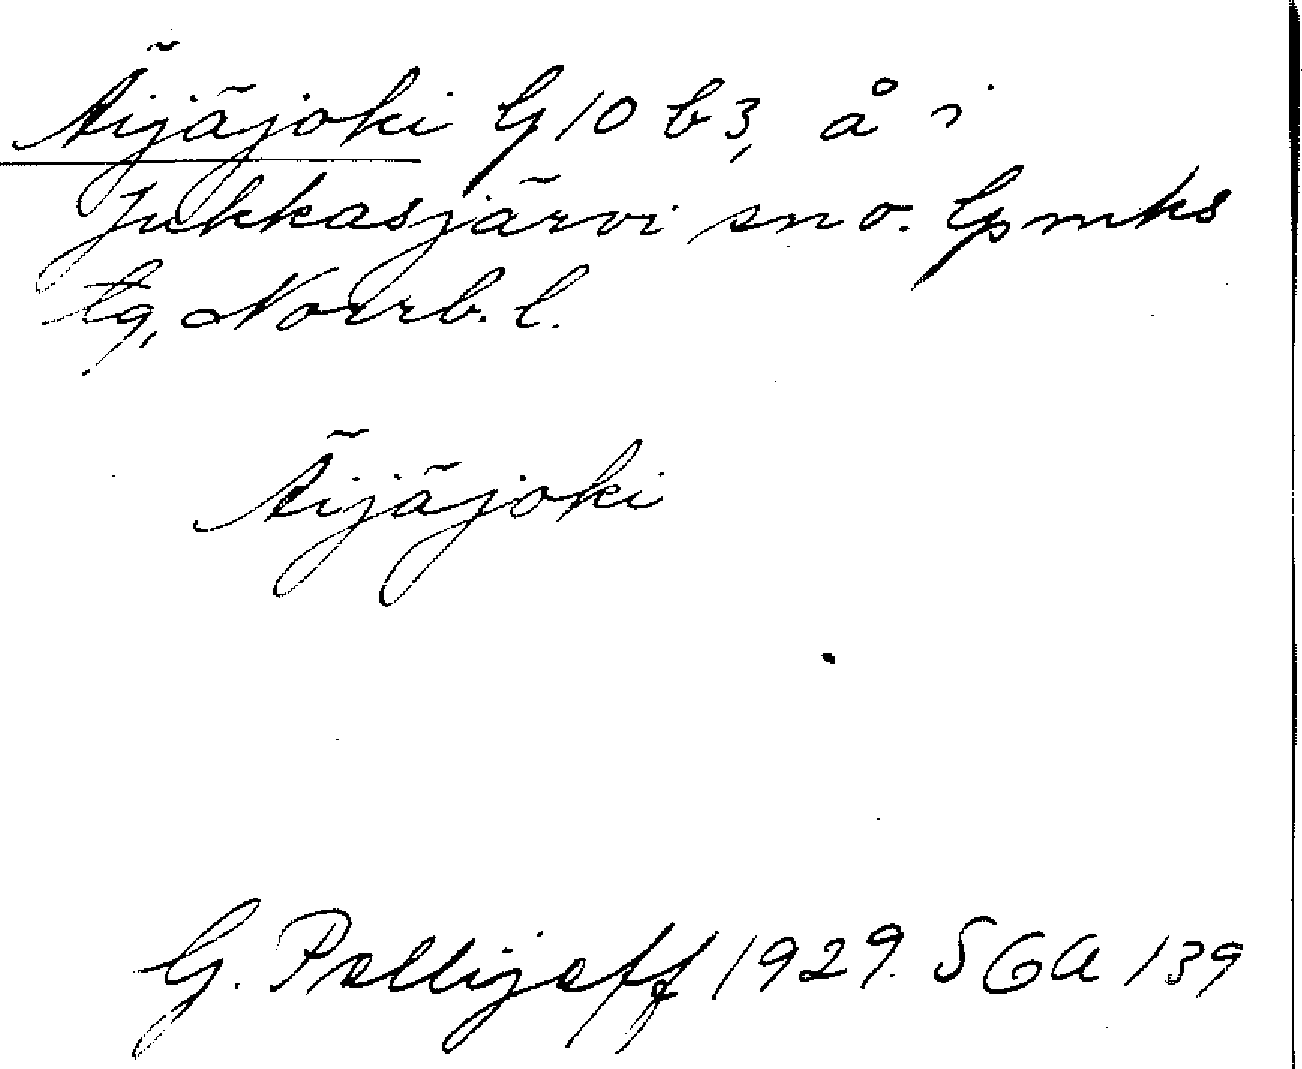 Äijäjoki G 10 b 3, å i
Jukkasjärvi sn o. lpmks
tg, Norrb. l.
Äijäjoki
G. Pellijeff 1929. SGA 139